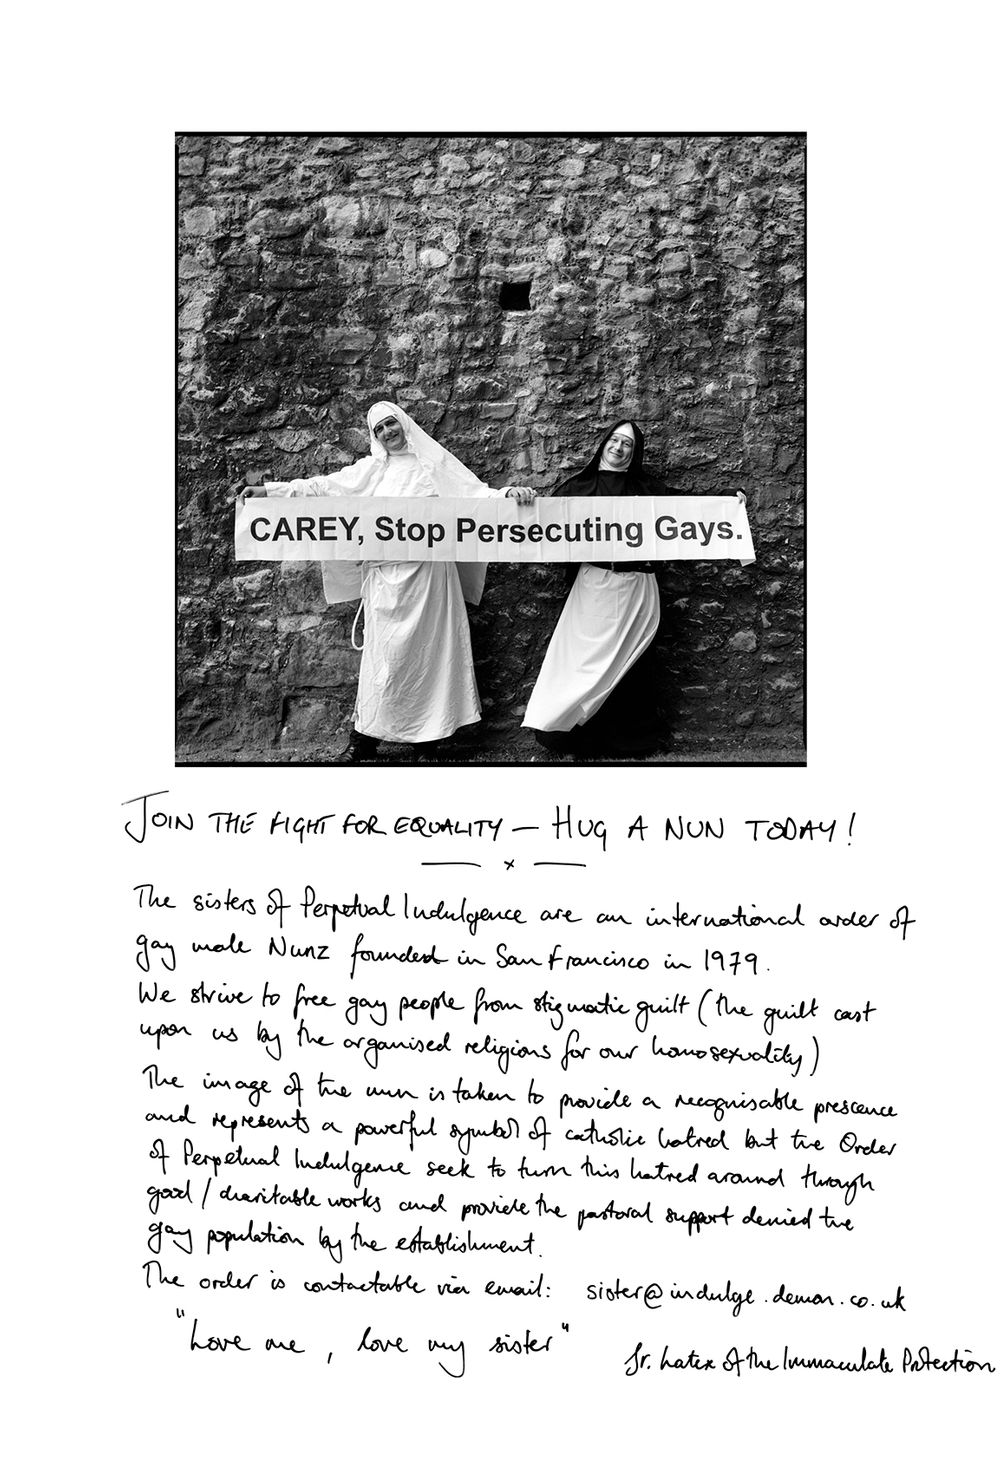 CAREY, Stop Persecuting Gays.
JOIN THE FIGHT FOR EQUALITY — HUG A NUN TODAY!
— x —
The sisters of Perpetual Indulgence are an international order of
gay male Nunz founded in San Francisco in 1979.
We strive to free gay people from stigmatic guilt (the guilt cast
upon us by the organised religions for our homosexuality)
The image of the nun is taken to provide a recognisable prescence
and represents a powerful symbol of catholic hatred but the Order
of Perpetual Indulgence seek to turn this hatred around through
good / charitable works and provide the pastoral support denied the
gay population by the establishment.
The order is contactable via email: sister@indulge.demon.co.uk
"Love me, love my sister"
Sr. Latex of the Immaculate Protection